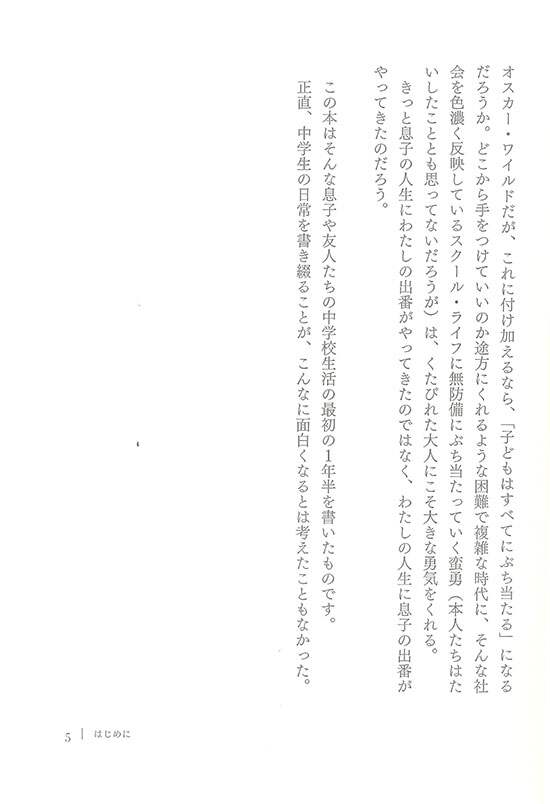 オスカー・ワイルドだが、これに付け加えるなら、「子どもはすべてにぶち当たる」になる
だろうか。どこから手をつけていいのか途方にくれるような困難で複雑な時代に、そんな社
会を色濃く反映しているスクール・ライフに無防備にぶち当たっていく蛮勇（本人たちはた
いしたこととも思ってないだろうが）は、くたびれた大人にこそ大きな勇気をくれる。
きっと息子の人生にわたしの出番がやってきたのではなく、わたしの人生に息子の出番が
やってきたのだろう。
この本はそんな息子や友人たちの中学校生活の最初の1年半を書いたものです。
正直、中学生の日常を書き綴ることが、こんなに面白くなるとは考えたこともなかった。
5 | はじめに